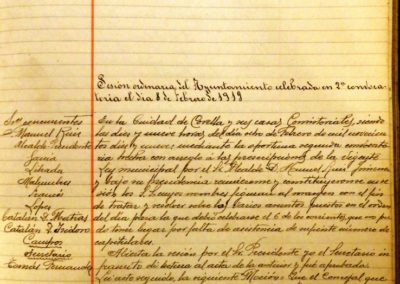 Sesión ordinaria del Ayuntamiento celebrada en 2ª convoca-
toria el dia 8 de Febrero de 1919
Sres concurrentes
D. Manuel Ruiz
Alcalde Presidente
Jaria
Librada
Malumbres
Lopez
Catalán D. Matias
Catalán D. Isidoro
Campos
Secretario
Tomás Fernando
En la Ciudad de Corella y sus casas Consistoriales, siendo
las diez y nueve horas del día ocho de Febrero de mil novecien
tos diez y nueve; mediante la oportuna segunda convocato
ria hecha con arreglo a las prescripciones de la vigente
Ley municipal por el Sr. Alcalde D. Manuel Ruiz
y bajo su presidencia reunieronse y constituyeronse en se
sión los S.S. cuyos nombres figuran al margen con el fin
de tratar y resolver sobre los varios asuntos puestos en el orden
del dia para la que debió celebrarse el 6 de los corrientes, que no pu
do tener lugar por falta de asistencia de suficiente número de
capitulares.
Abierta la sesión por el Sr. Presidente yo el Secretario in
frascrito di lectura al acta de la anterior y fué aprobada.
acto seguido, la siguiente Moción: Que el Concejal que